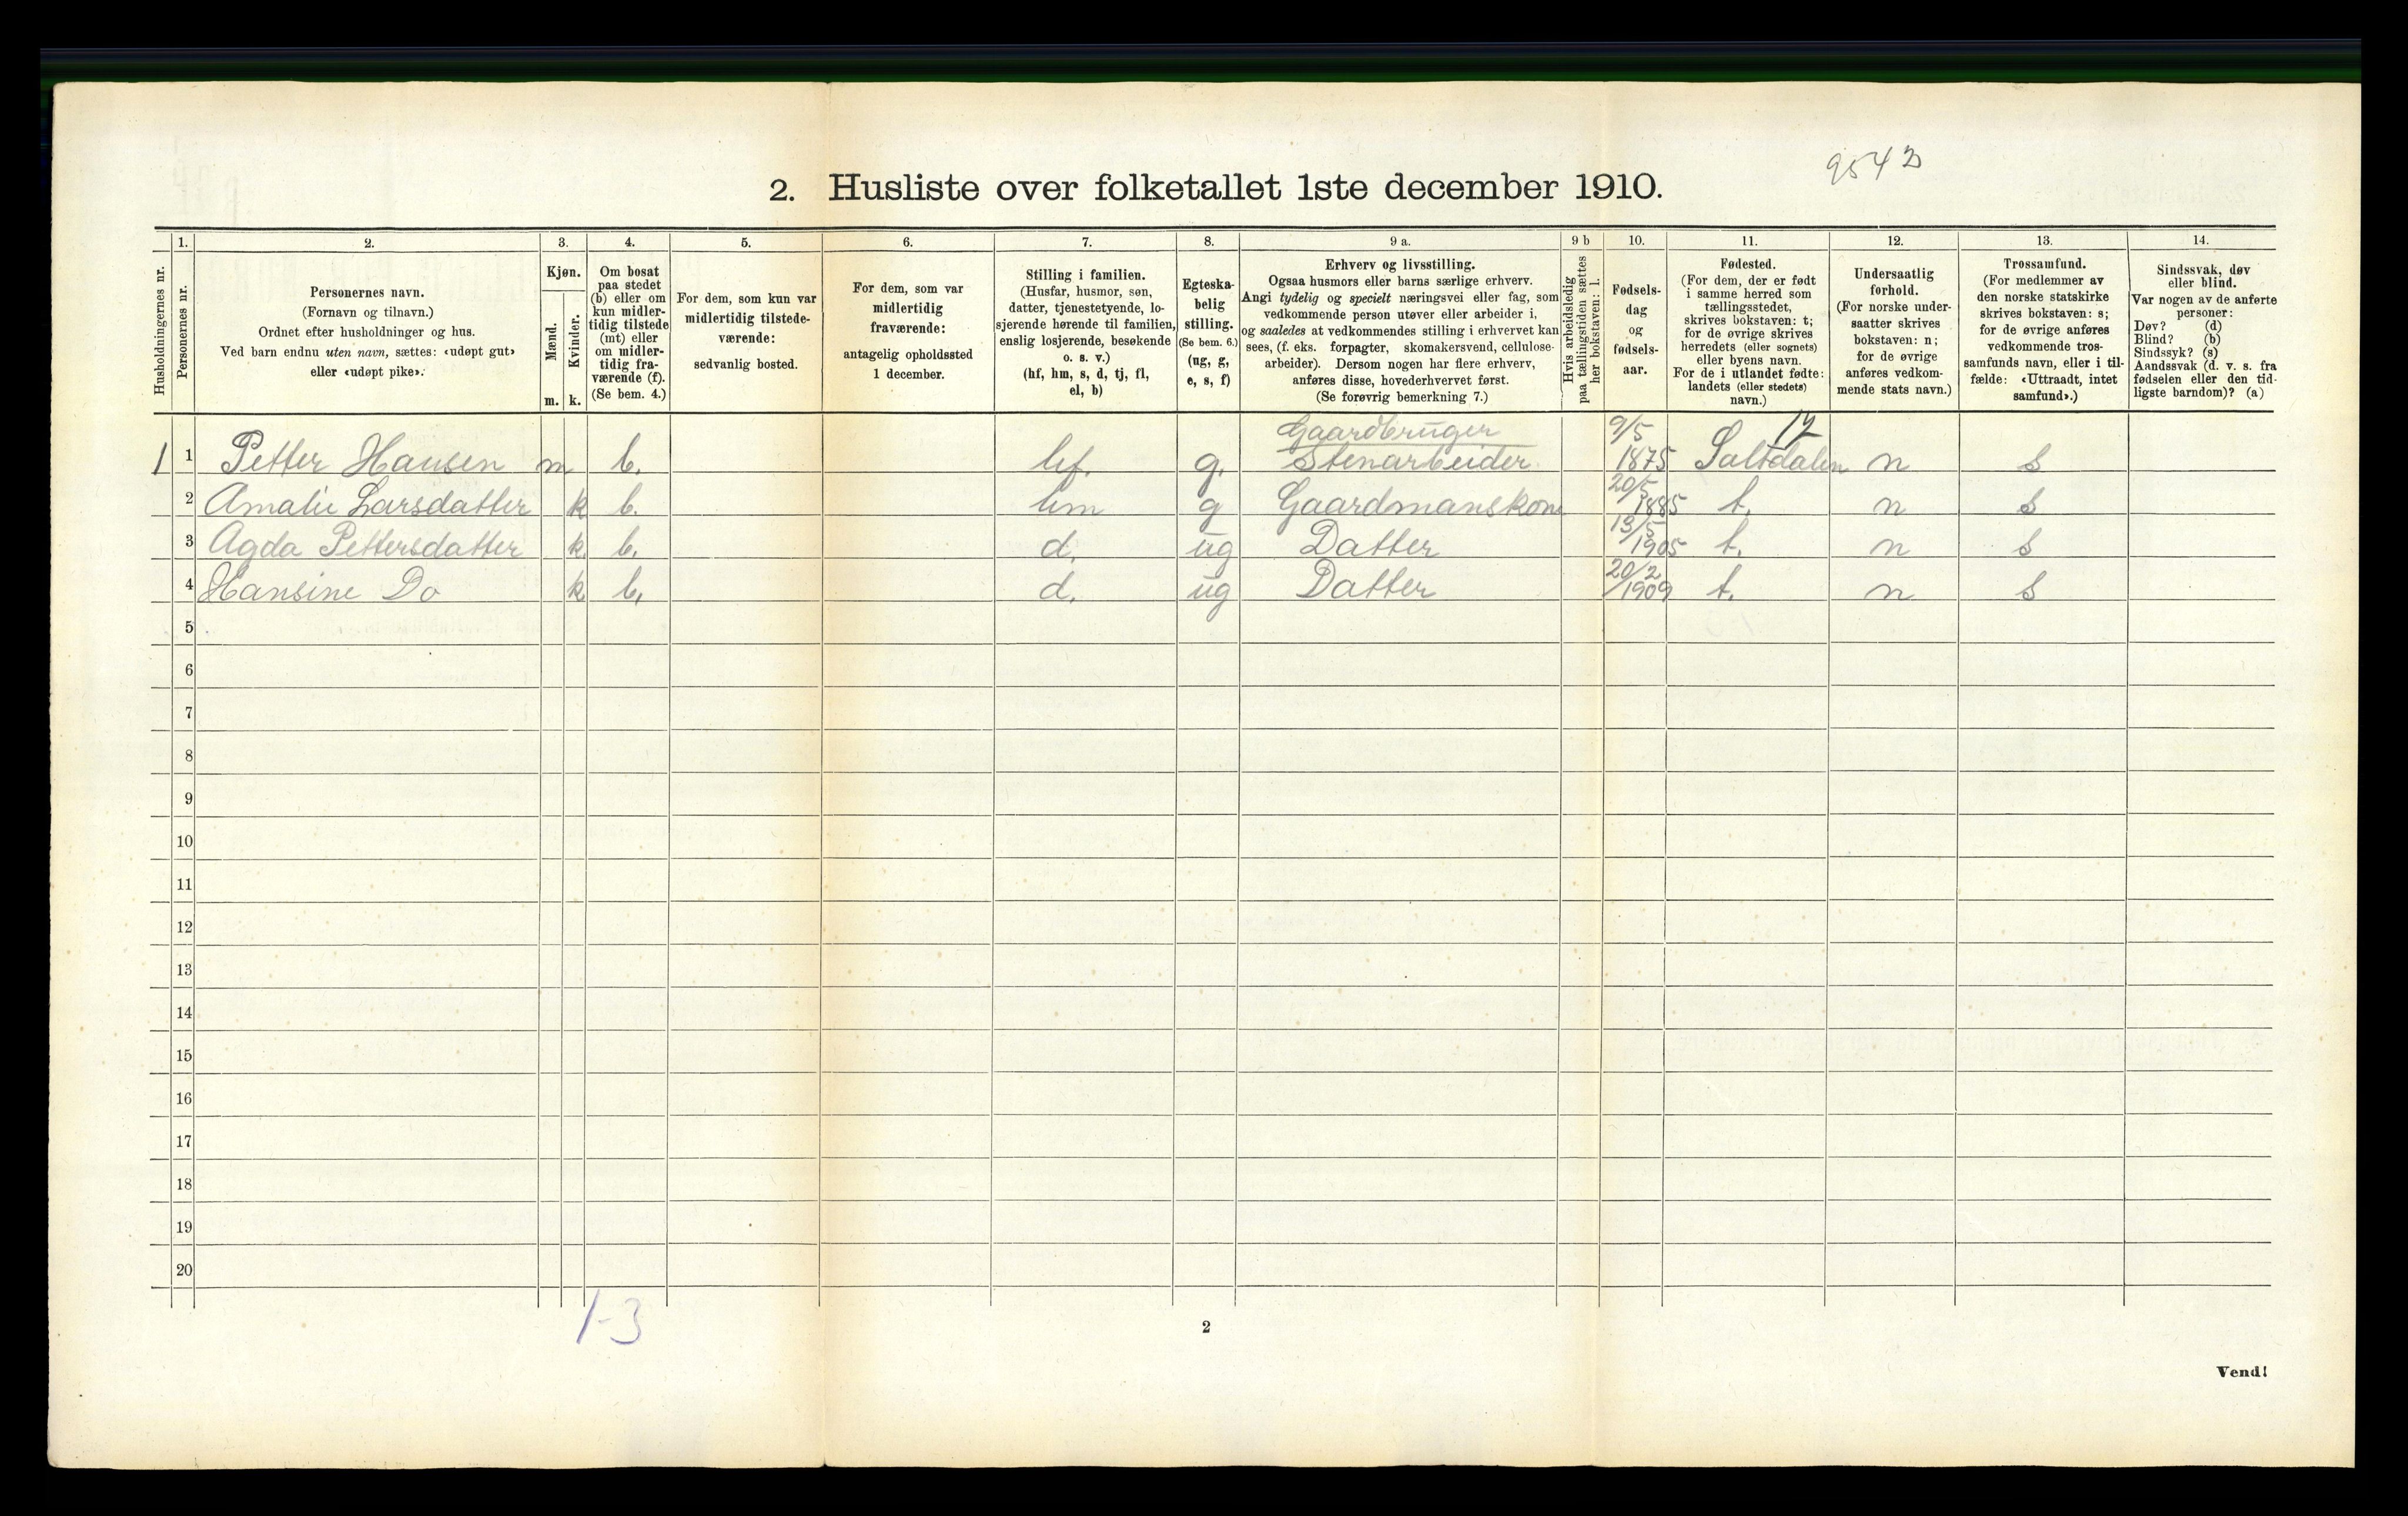 9542
2. Husliste over folketallet 1ste december 1910.
Husholdningernes nr.
1.
Personernes nr.
2.
Personernes navn.
(Fornavn og tilnavn.)
Ordnet efter husholdninger og hus.
Ved barn endnu uten navn, sættes: «udøpt gut»
eller «udøpt pike».
3.
Kjøn.
Mænd.
m.
Kvinder.
k.
4.
Om bosat
paa stedet
(b) eller om
kun midler-
tidig tilstede
(mt) eller
om midler-
tidig fra-
værende (f).
(Se bem. 4.)
5.
For dem, som kun var
midlertidig tilstede-
værende:
sedvanlig bosted.
6.
For dem, som var
midlertidig
fraværende:
antagelig opholdssted
1 december.
7.
Stilling i familien.
(Husfar, husmor, søn,
datter, tjenestetyende, lo-
sjerende hørende til familien,
enslig losjerende, besøkende
o. s. v.)
(hf, hm, s, d, tj, fl,
el, b)
8.
Egteska-
belig
stilling.
(Se bem. 6.)
(ug, g,
e, s, f)
9 a.
Erhverv og livsstilling.
Ogsaa husmors eller barns særlige erhverv.
Angi tydelig og specielt næringsvei eller fag, som
vedkommende person utøver eller arbeider i,
og saaledes at vedkommendes stilling i erhvervet kan
sees, (f. eks. forpagter, skomakersvend, cellulose-
arbeider). Dersom nogen har flere erhverv,
anføres disse, hovederhvervet først.
(Se forøvrig bemerkning 7.)
9 b
Hvis arbeidsledig
paa tællingstiden sættes
her bokstaven: l.
10.
Fødsels-
dag
og
fødsels-
aar.
11.
Fødested.
(For dem, der er født
i samme herred som
tællingsstedet,
skrives bokstaven: t;
for de øvrige skrives
herredets (eller sognets)
eller byens navn.
For de i utlandet fødte:
landets (eller stedets)
navn.)
12.
Undersaatlig
forhold.
(For norske under-
saatter skrives
bokstaven: n;
for de øvrige
anføres vedkom-
mende stats navn.)
13.
Trossamfund.
(For medlemmer av
den norske statskirke
skrives bokstaven: s;
for de øvrige anføres
vedkommende tros-
samfunds navn, eller i til-
fælde: «Uttraadt, intet
samfund».)
14.
Sindssvak, døv
eller blind.
Var nogen av de anførte
personer:
Døv? (d)
Blind? (b)
Sindssyk? (s)
Aandssvak (d. v. s. fra
fødselen eller den tid-
ligste barndom)? (a)
Gaardbruger 9/5 17
1 1 Petter Hansen m b. hf. g. Stenarbeider 1875 Saltdalen n s
2 Amalie Larsdatter k b. hm g Gaardmanskone 20/5 1885 t. n s
3 Agda Pettersdatter k b. d. ug Datter 13/5 1905 t. n s
4 Hansine Do k b. d. ug Datter 20/2 1909 t. n s
5
6
7
8
9
10
11
12
13
14
15
16
17
18
19
20
1-3
2
Vend!